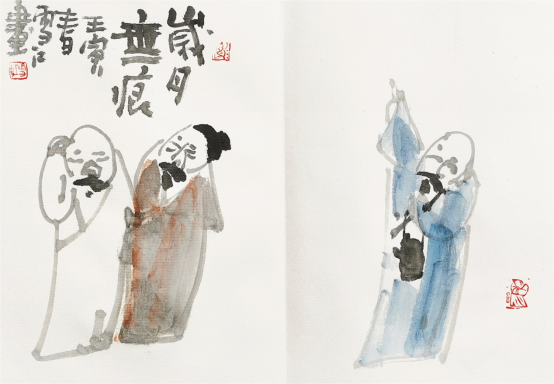 歲月
無痕
壬寅
春
雪江
畫